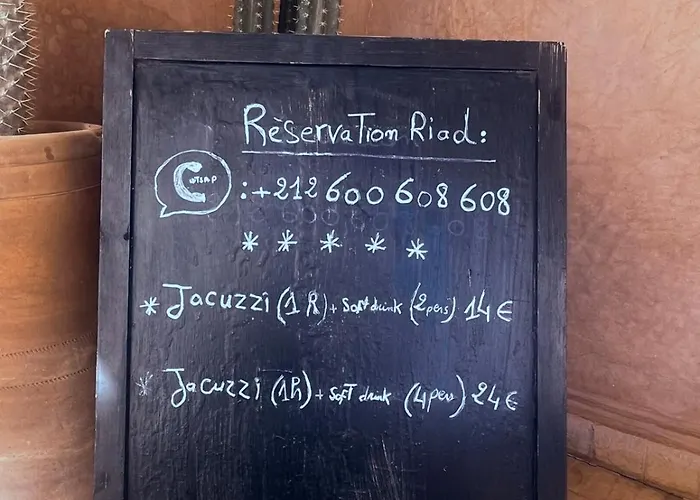 Rèservation Riad:
WTSAP :+212 600 608 608
* * * * *
* Jacuzzi (1 H) + Soft drink (2pers) 14 €
* Jacuzzi (1h) + soft drink (4pers) 24 €